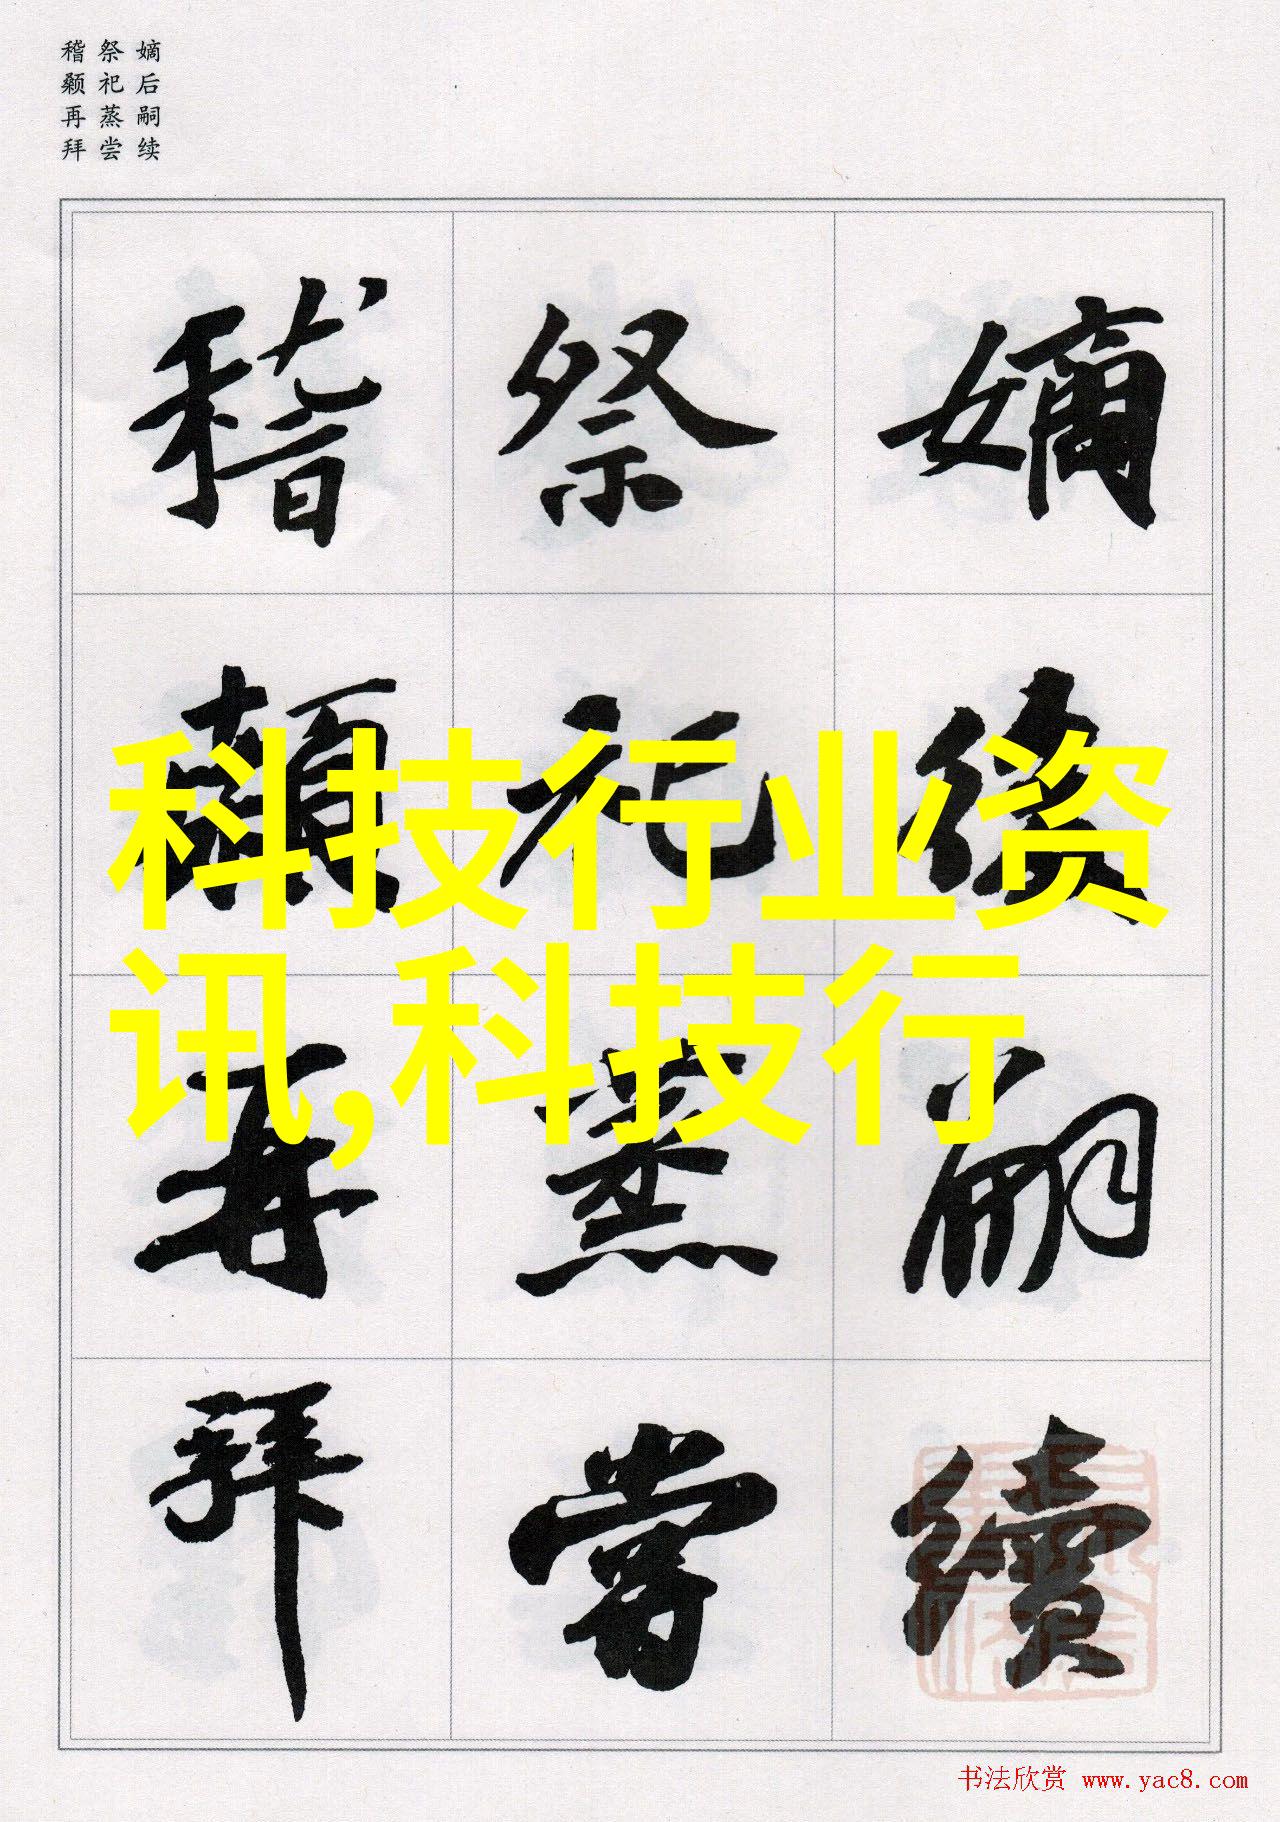 嫡后嗣续
祭祀蒸尝
稽颡再拜
嫡後嗣續
祭祀蒸嘗
稽顙再拜
科技行业资
讯,科技行
书法欣赏 www.yac8.com